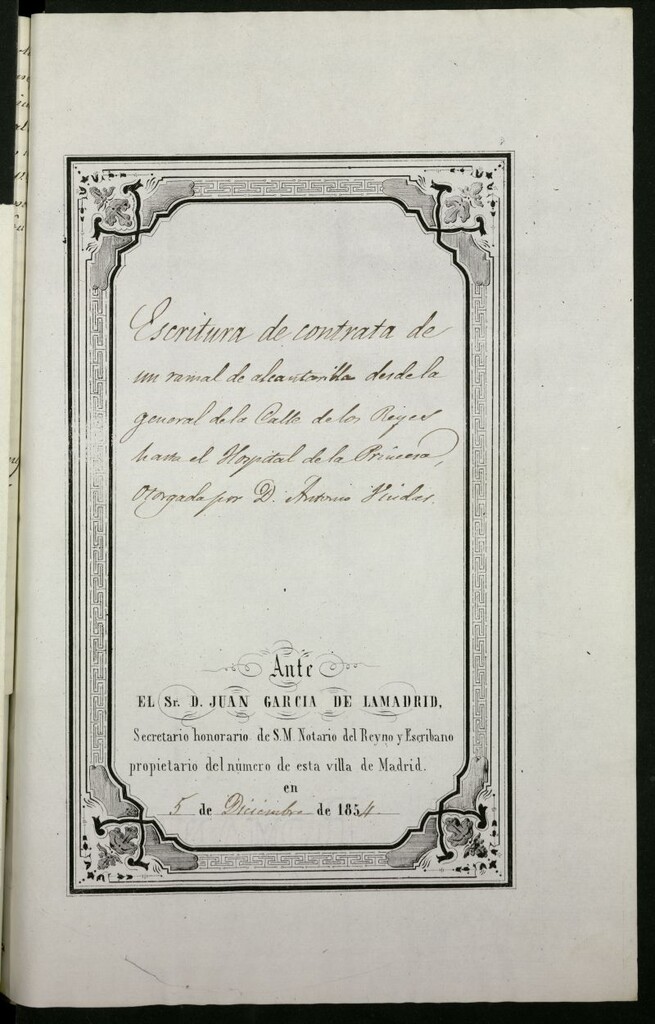 Escritura de contrata de
un ramal de alcantarilla desde la
general de la Calle de los Reyes
hasta el Hospital de la Princesa,
otorgada por D. Antonio
Ante
EL Sr. D. JUAN GARCIA DE LAMADRID,
Secretario honorario de S.M. Notario del Reyno y Escribano
propietario del número de esta villa de Madrid.
en
5 de Diciembre de 1854.